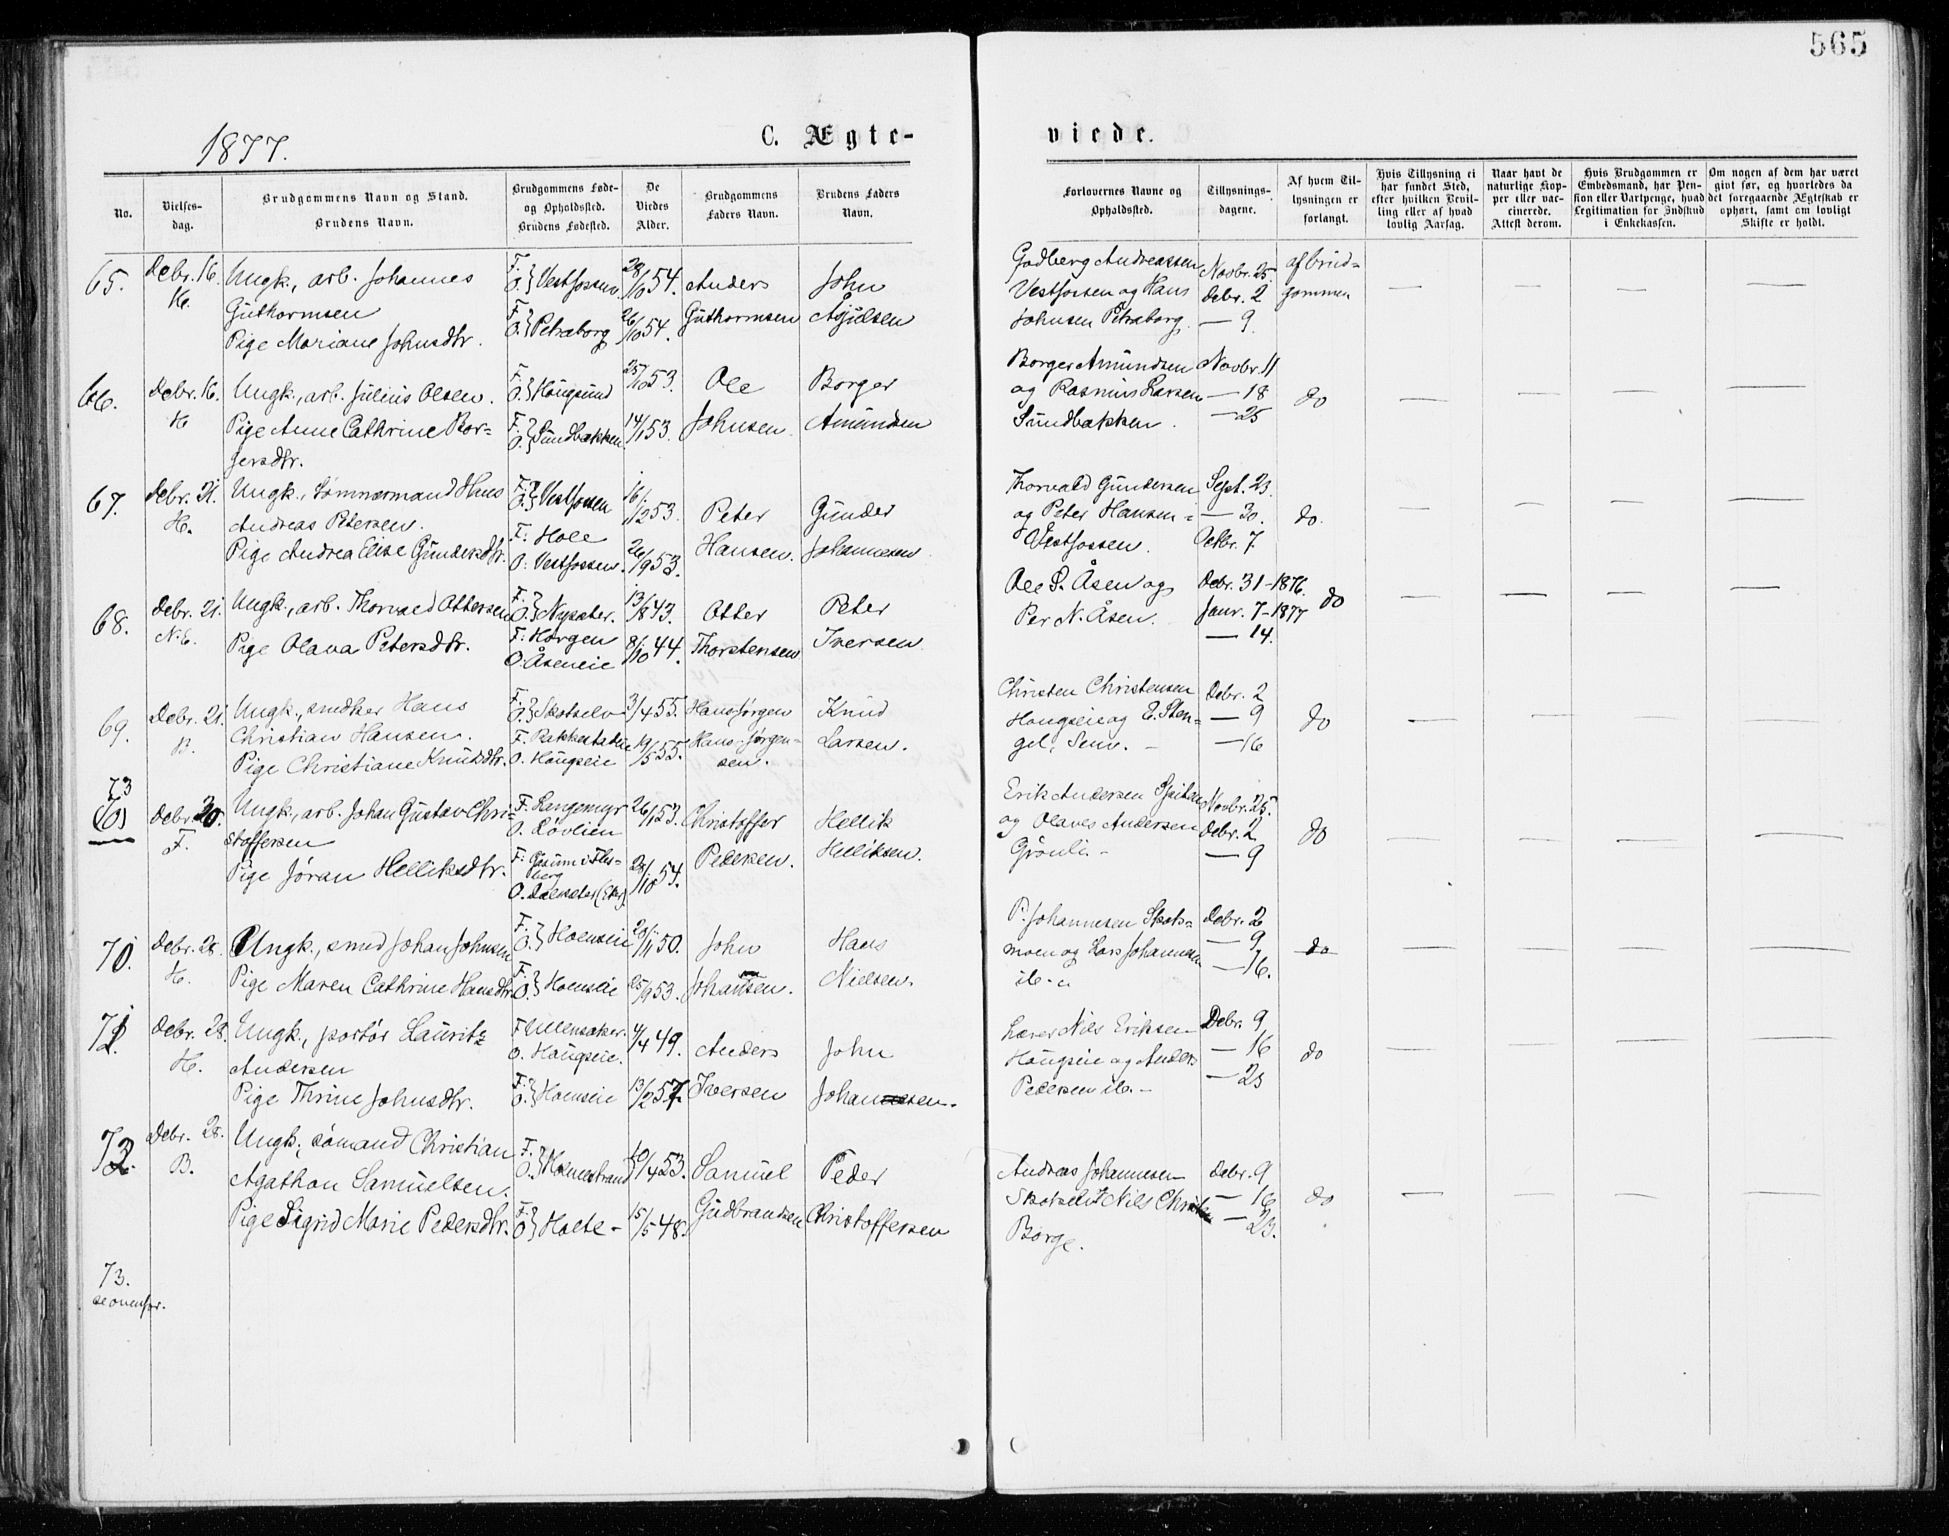 565
1877.
C. Ægte-
viede.
No.
Vielses-
dag.
Brudgommens Navn og Stand.
Brudens Navn.
Brudgommens Føde-
og Opholdssted.
Brudens Fødested.
De
Viedes
Alder.
Brudgommens
Faders Navn.
Brudens Faders
Navn.
Forlovernes Navne og
Opholdssted.
Tillysnings-
dagene.
Af hvem Til-
lysningen er
forlangt.
Hvis Tillysning ei
har fundet Sted,
efter hvilken Bevil-
ling eller af hvad
lovlig Aarsag.
Naar havt de
naturlige Kop-
per eller vac-
cinerede.
Attest derom.
Hvis Brudgommen er
Embedsmand, har Pen-
sion eller Vartpenge, hvad
Legitimation for Indskud
i Enkekassen.
Om nogen af dem har været
givt før, og hvorledes da
det foregaaende Ægteskab er
ophørt, samt om lovligt
Skifte er holdt.
65.
Debr. 16.
H.
Ungk., arb. Johannes
Guthormsen
Pige Mariane Johnsdtr.
F. O. } Vestfossen
F. O. } Petraborg
28/10 54.
26/10 54.
Anders
Guthormsen
John
Godberg Andreassen
Vestfossen og Hans
Johnsen Petraborg.
Novbr. 25
Debr. 2
— 9.
af brud-
gommen
66.
Debr. 16.
H
Ungk., arb. Julius Olsen.
Pige Anne Cathrine Bor-
gersdtr.
F. O. } Hougsund
F. O. } Sundbakken
25/10 53.
14/1 53.
Ole
Johnsen.
Borger
Amundsen
Borger Amundsen
og Rasmus Larsen
Sundbakken.
Novbr. 11
— 18
— 25
do
67.
Debr. 21.
H.
Ungk., Tømmermand Hans
Andreas Petersen.
Pige Andrea Elise Gundersdtr.
F. O. } Vestfossen
F. Hole
O. Vestfossen.
16/12 53.
26/9 53.
Peter
Hansen.
Gunder
Johannesen
Thorvald Gundersen
og Peter Hansen -
Vestfossen.
Sept. 23.
— 30.
Octbr. 7.
do.
68.
Debr. 21.
N.E.
Ungk., arb. Thorvald Ottersen
Pige Olava Petersdtr.
F. O. } Nysæter.
F. Horgen
O. Åseneie
13/8 43.
8/10 44.
Otter
Thorstensen
Peter
Iversen
Ole P. Åsen og
Per N. Åsen.
Debr. 31-1876.
Janr. 7-1877
— 14.
do
69.
Debr. 21.
B.
Ungk., snedker Hans
Christian Hansen.
Pige Christiane Knudsdtr.
F. O. } Skotselv
F. Bakkestadeie
O. Hougseie
3/4 55.
19/5 55.
Hans Jørgen
Hans Jørgen-
sen.
Knud
Larsen.
Christen Christensen
Hougseie og E. Sten-
gel, Semv. -
Debr. 2
— 9
— 16
do
73
70
Debr. 30.
F.
Ungk., arb. Johan Gustav Chri-
stoffersen
Pige Jøran Helliksdtr.
F. Langemyr
O. Løvlien
berg
26/1 53.
28/10 54.
Christoffer
Pedersen.
Hellik
Helliksen.
Erik Andersen
og Olaves Andersen
Grønli. -
Novbr. 25.
Debr. 2
— 9
do
70.
Debr. 28.
H.
Ungk., smed Johan Johnsen
Pige Maren Cathrine Hansdtr.
F. O. } Hoenseie
F. O. } Hoenseie
28/11 50.
25/9 53.
John
Johansen.
Hans
Nielsen.
P. Johannesen Skots-
moen og Lars Johannesen
ib. -
Debr. 2
— 9
— 16.
do
71.
Debr. 28.
H.
Ungk., portør Lauritz
Andersen
Pige Thrine Johnsdtr.
F. Ullensaker.
O. Hougseie.
F. O. } Hoenseie
4/4 49.
13/2 57.
Anders
Iversen
John
Johannesen.
Lærer Nils Eriksen
Hougseie og Anders
Pedersen ib. -
Debr. 9
— 16
— 23
do
72.
Debr. 28.
B.
Ungk., sømand Christian
Agathon Samuelsen.
Pige Sigrid Marie Pedersdtr.
F. O. } Holmestrand
F. O. } Holte -
10/4 53.
15/5 48.
Samuel
Gudbrandsen
Peder
Christoffersen
Andreas Johannesen
Skotselv Nils Christen
Borge.
Debr. 9
— 16
— 23.
do
73.
se ovenfor.